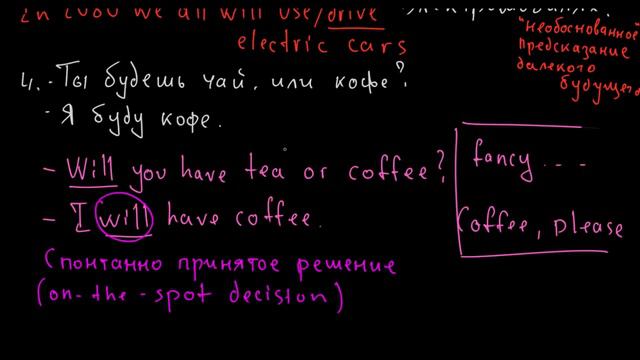 In 2080 we all will use/drive
electric cars
"необоснованное"
предсказание
далекого
будущего
4. - Ты будешь чай, или кофе?
- Я буду кофе.
- Will you have tea or coffee?
- I will have coffee.
fancy ...
Coffee, please
Спонтанно принятое решение
(on-the-spot decision)